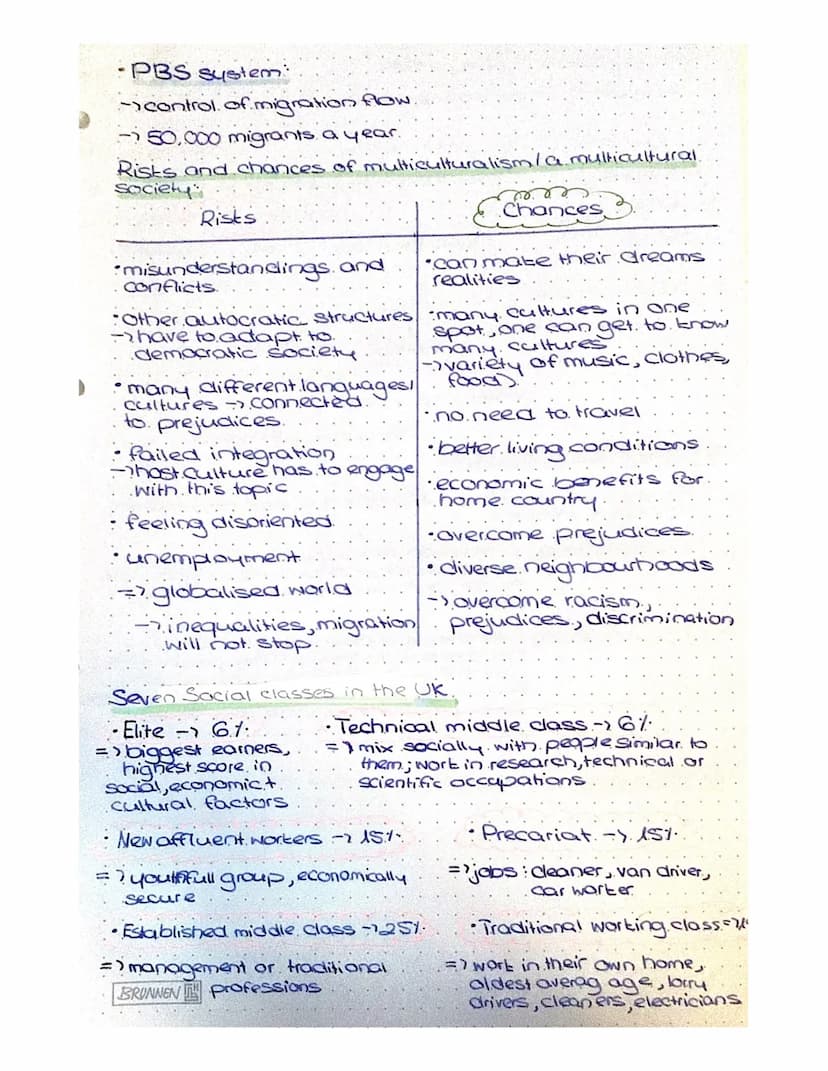 · PBS system:
-> control of migration flow
-> 50.000 migrants a year
Risks and chances of multiculturalism / a multicultural
society:
Risks
· misunderstandings and
conflicts
· Other autocratic structures
-> have to adapt to
democratic society
· many different languages/
cultures -> connected
to prejudices
· failed integration
-> host culture has to engage
with this topic
· feeling disoriented
· unemployment
=> globalised world
-> inequalities, migration
will not stop
Chances
· can make their dreams
realities
· many cultures in one
spot, one can get to know
many cultures
-> variety of music, clothes,
food)
· no need to travel
· better living conditions
· economic benefits for
home country
· overcome prejudices
· diverse neighbourhoods
-> overcome racism,
prejudices, discrimination
Seven Social classes in the UK
· Elite -> 6%
=> biggest earners,
highest score in
social, economic +
cultural factors
· Technical middle class -> 6%
=> mix socially with people similar to
them; work in research, technical or
scientific occupations
· New affluent workers -> 15%
=> youthfull group, economically
secure
· Precariat -> 15%
=> jobs: cleaner, van driver,
car worker
· Established middle class -> 25%
=> management or traditional
professions
· Traditional working class =>
=> work in their own home,
oldest averag age, lorry
drivers, cleaners, electricians
BRUNNEN